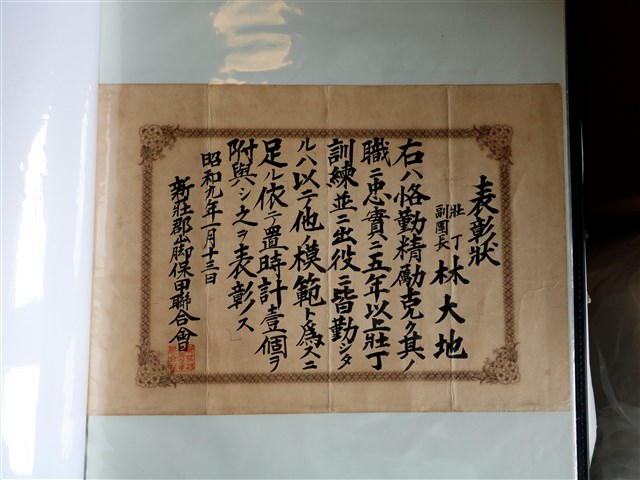 表彰狀
壯丁
副團長
林大地
右ハ恪勤精勵克ク其ノ
職ニ忠實ニ五年以上壯丁
訓練並ニ出役ニ皆勤シタ
ルハ以テ他ノ模範ト爲スニ
足ル依テ置時計壹個ヲ
附與シ之ヲ表彰ス
昭和九年一月十三日
新莊郡山脚保甲聯合會